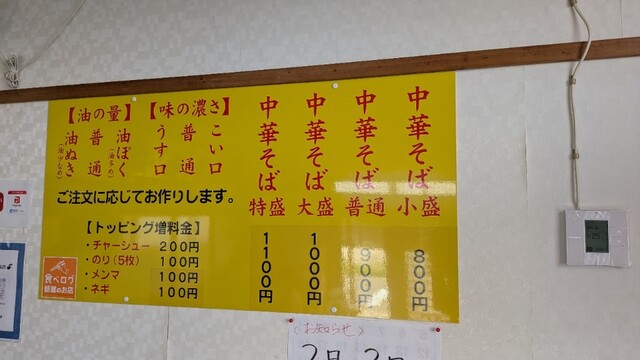 中華そば 小盛 800円
中華そば 普通 900円
中華そば 大盛 1000円
中華そば 特盛 1100円
【味の濃さ】
こい口
普通
うす口
【油の量】
油ぽく(油多め)
普通
油ぬき(油少なめ)
ご注文に応じてお作りします。
【トッピング増料金】
・チャーシュー 200円
・のり(5枚) 100円
・メンマ 100円
・ネギ 100円
食べログ
話題のお店
<お知らせ>